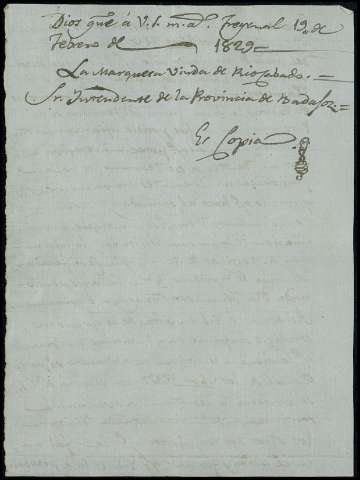 Dios gue. á V. S. m. a.s Fregenal 19 de
Febrero de 1829=
La Marquesa Viuda de Riocabado.=
Sr. Yntendente de la Provincia de Badajoz=
Es Copia